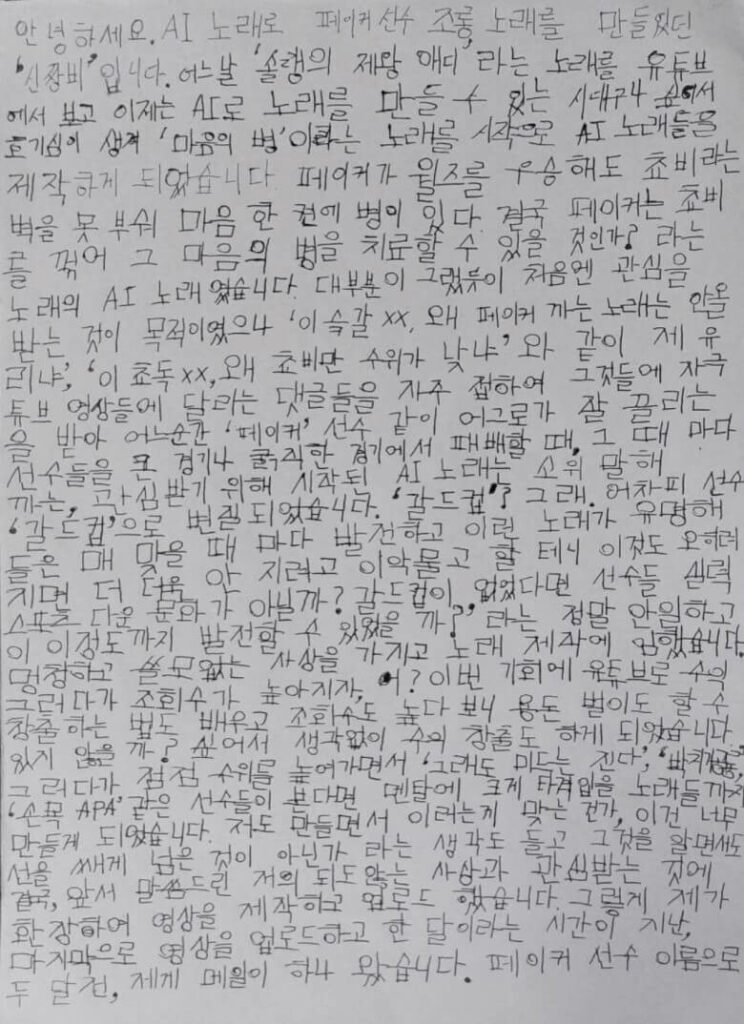 안녕하세요. AI 노래로 페이커 선수 조롱 노래를 만들었던
'신짱비'입니다. 어느날 '솔랭의 제왕 애디'라는 노래를 유튜브
에서 보고 이제는 AI로 노래를 만들 수 있는 시대구나 싶어서
호기심이 생겨 '마음의 병'이라는 노래를 시작으로 AI 노래들을
제작하게 되었습니다. 페이커가 월즈를 우승해도 쵸비라는
벽을 못 부숴 마음 한 켠에 병이 있다. 결국 페이커는 쵸비
를 꺾어 그 마음의 병을 치료할 수 있을 것인가? 라는
노래의 AI 노래였습니다. 대부분이 그랬듯이 처음엔 관심을
받는 것이 목적이였으나 '이 슼갈xx, 왜 페이커 까는 노래는 안올
리냐', '이 쵸독xx, 왜 쵸비만 수위가 낮냐'와 같이 제 유
튜브 영상들에 달리는 댓글들을 자주 접하여 그것들에 자극
을 받아 어느순간 '페이커' 선수 같이 어그로가 잘 끌리는
선수들을 큰 경기나 굵직한 경기에서 패배할 때, 그 때 마다
까는, 관심받기 위해 시작된 AI 노래는 소위 말해
'갈드컵'으로 변질되었습니다. '갈드컵'? 그래. 어차피 선수
들은 매 맞을 때 마다 발전하고 이런 노래가 유명해
지면 더 더욱 안 지려고 이악물고 할 테니 이것도 오히려
스포츠 다운 문화가 아닐까? 갈드컵이 없었다면 선수들 실력
이 이정도까지 발전할 수 있었을까?' 라는 정말 안일하고
멍청하고 쓸모없는 사상을 가지고 노래 제작에 임했습니다.
그러다가 조회수가 높아지자, 어? 이번 기회에 유튜브로 수익
창출하는 법도 배우고 조회수도 높다 보니 용돈 벌이도 할 수
있지 않을까? 싶어서 생각없이 수익 창출도 하게 되었습니다.
그러다가 점점 수위를 높여가면서 '그래도 미드는 진다',
'손목 APA' 같은 선수들이 본다면 멘탈에 크게 타격입을 노래들까지
만들게 되었습니다. 저도 만들면서 이러는게 맞는 건가, 이건 너무
선을 쎄게 넘은 것이 아닌가 라는 생각도 들고 그것을 알면서도
결국, 앞서 말씀드린 저의 되도않는 사상과 관심받는 것에
환장하여 영상을 제작하고 업로드 했습니다. 그렇게 제가
마지막으로 영상을 업로드하고 한 달이라는 시간이 지난,
두 달전, 제게 메일이 하나 왔습니다. 페이커 선수 이름으로